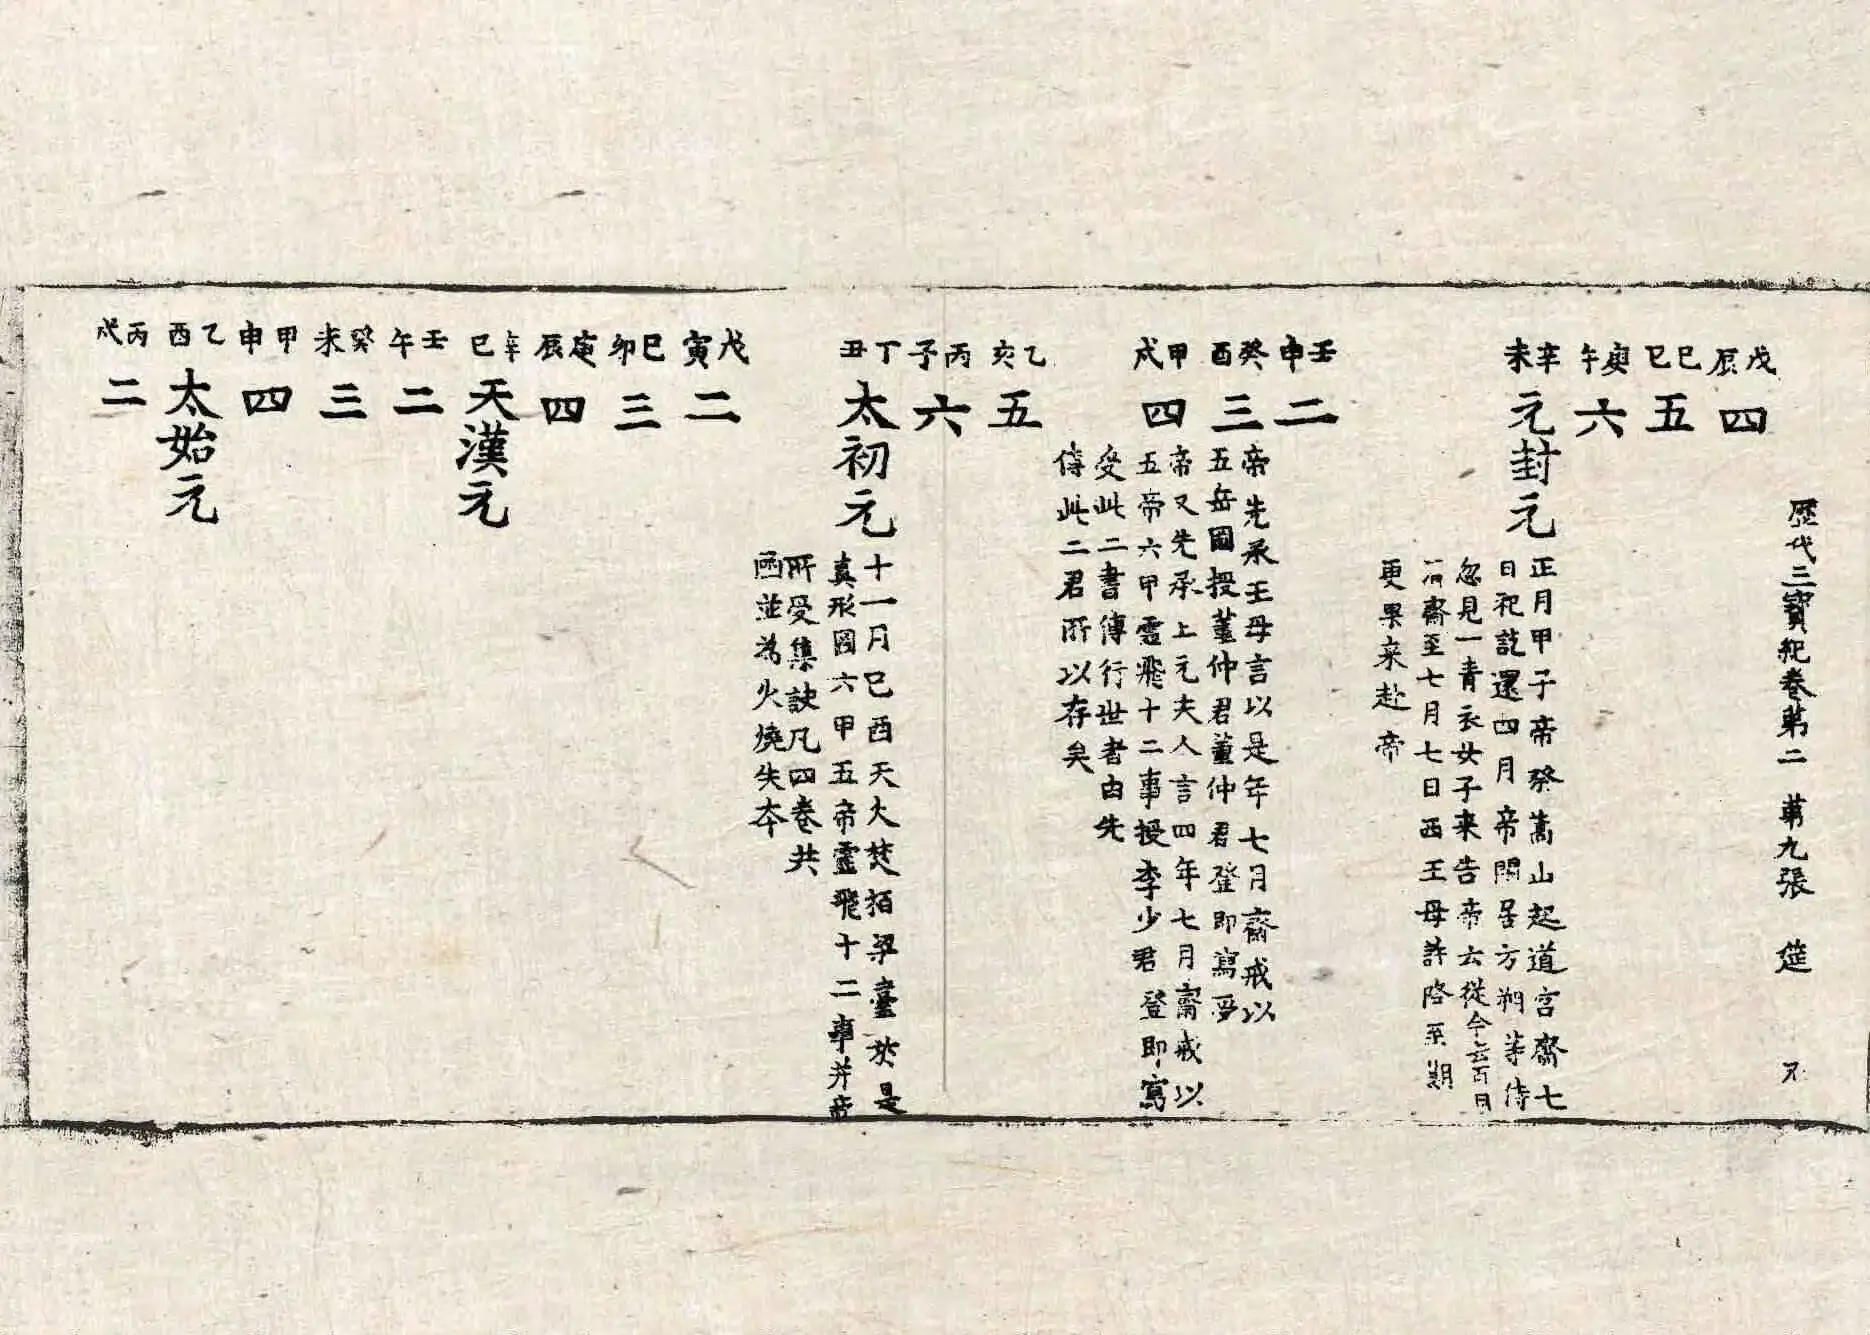 歷代三寶紀卷第二 第九張 筵
戊辰 四
己巳 五
庚午 六
辛未 元封元
正月甲子帝祭嵩山起道宮齋七
日祀訖還四月帝閒居方朔等侍
忽見一青衣女子来告帝云從今云百日
清齋至七月七日西王母許降至期
更果来赴帝
壬申 二
癸酉 三
帝先承王母言以是年七月齋戒以
五岳圖授董仲君董仲君登即寫受
甲戌 四
帝又先承上元夫人言四年七月齋戒以
五帝六甲靈飛十二事授李少君登即寫
受此二書傳行世者由先
傳此二君所以存矣
乙亥 五
丙子 六
丁丑 太初元
十一月己酉天火焚栢梁臺於是
真形圖六甲五帝靈飛十二事并帝
所受集訣凡四卷共
函並為火燒失本
戊寅 二
己卯 三
庚辰 四
辛巳 天漢元
壬午 二
癸未 三
甲申 四
乙酉 太始元
丙戌 二